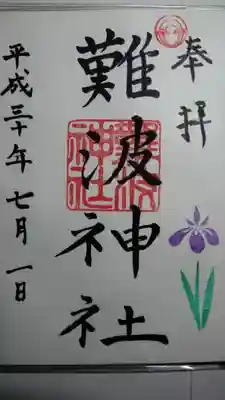 奉拝
難波神社
平成三十年七月一日